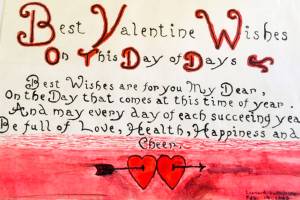 Best Valentine Wishes
On This Day of Days
Best Wishes are for you My Dear,
On the Day that comes at this time of year.
And may every day of each succeeding yea
Be full of Love, Health, Happiness and
Cheer.